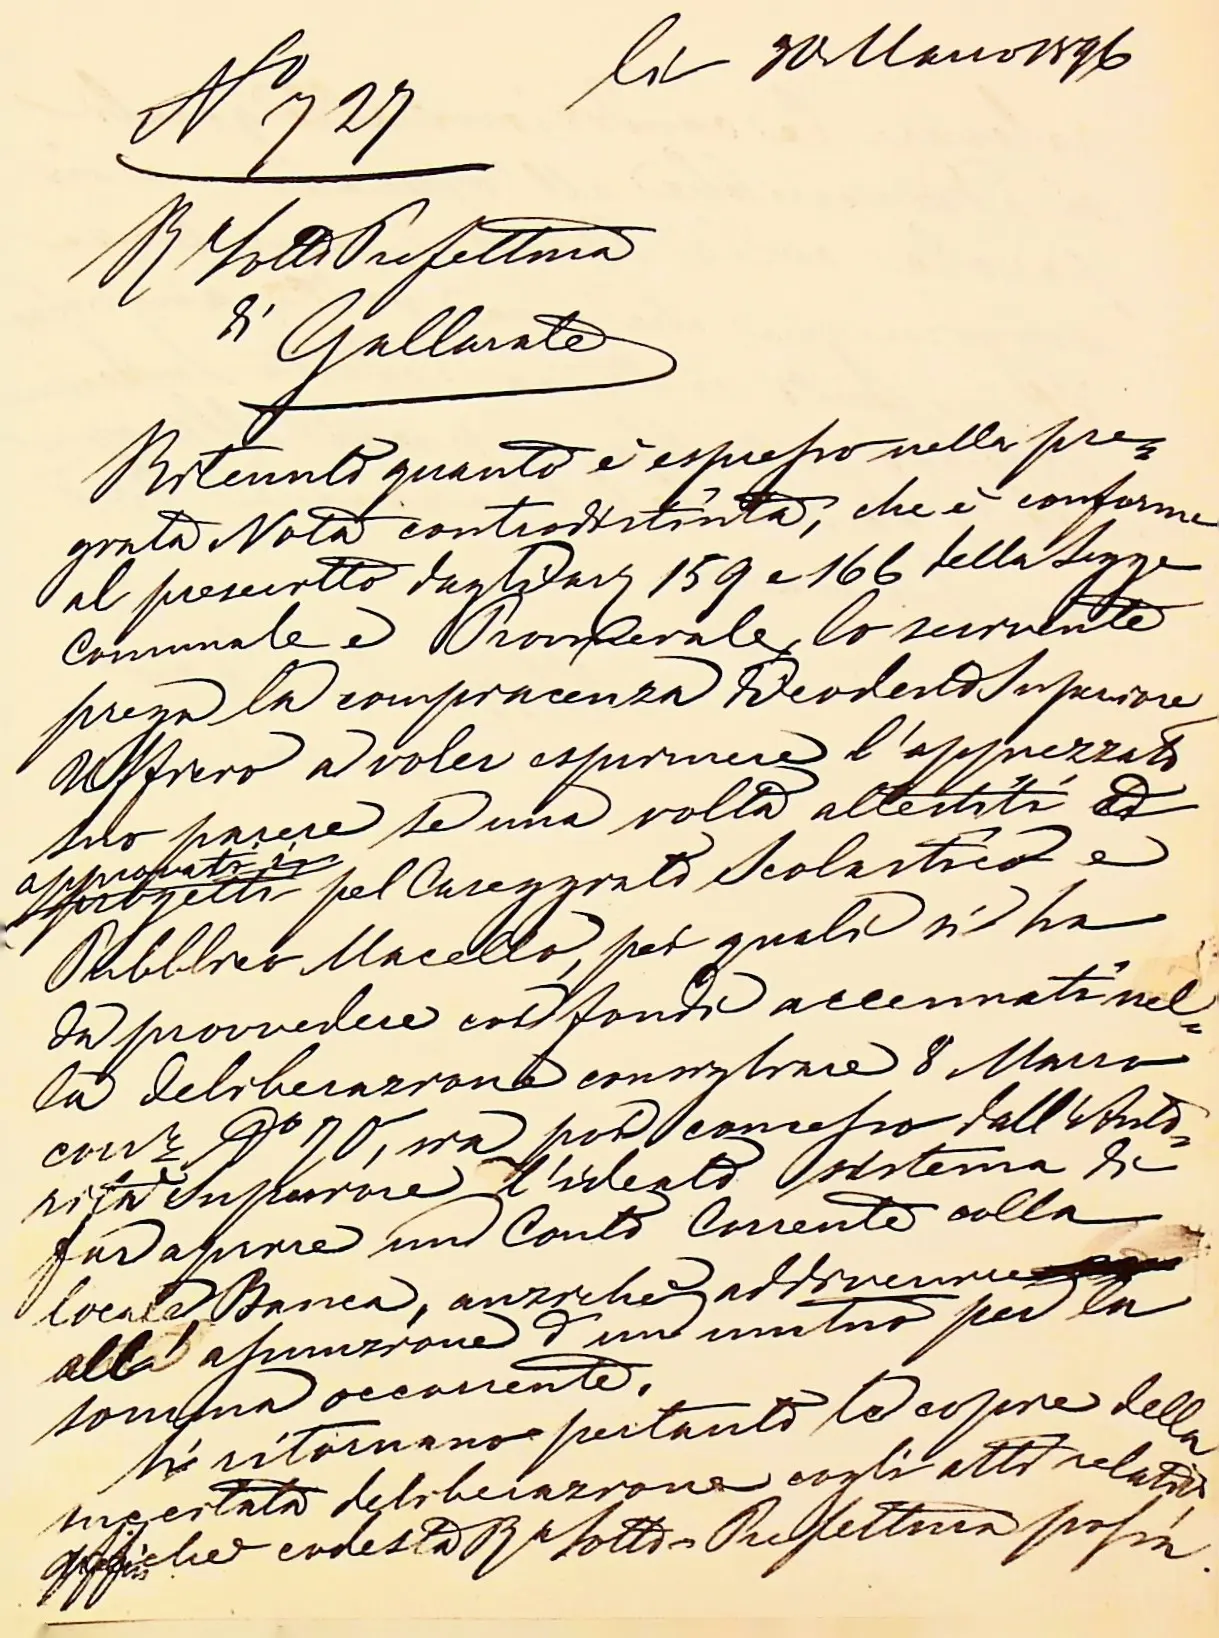 lì 30 Marzo 1896
N° 727
R.ª Sotto Prefettura
di Gallarate
Ritenuto quanto è espresso nella pre=
giata Nota controdistinta, che è conforme
al prescritto dagli art. 159 e 166 della Legge
Comunale e Provinciale, lo scrivente
prega la compiacenza di codesto Superiore
Ufficio a voler esprimere l'apprezzato
suo parere se una volta allestiti ed
approvati i
progetti pel Caseggiato Scolastico e
Pubblico Macello, pei quali si ha
da provvedere coi fondi accennati nel=
la deliberazione consigliare 8 Marzo
corr. N° 70, sia poi concesso dall'Auto=
rità Superiore l'ideato sistema di
far aprire un Conto Corrente colla
locale Banca, anzichè addivenire
all'assunzione d'un mutuo per la
somma occorrente.
Si ritornano pertanto le copie della
succitata deliberazione cogli atti relativi
affinchè codesta R.ª Sotto-Prefettura possa